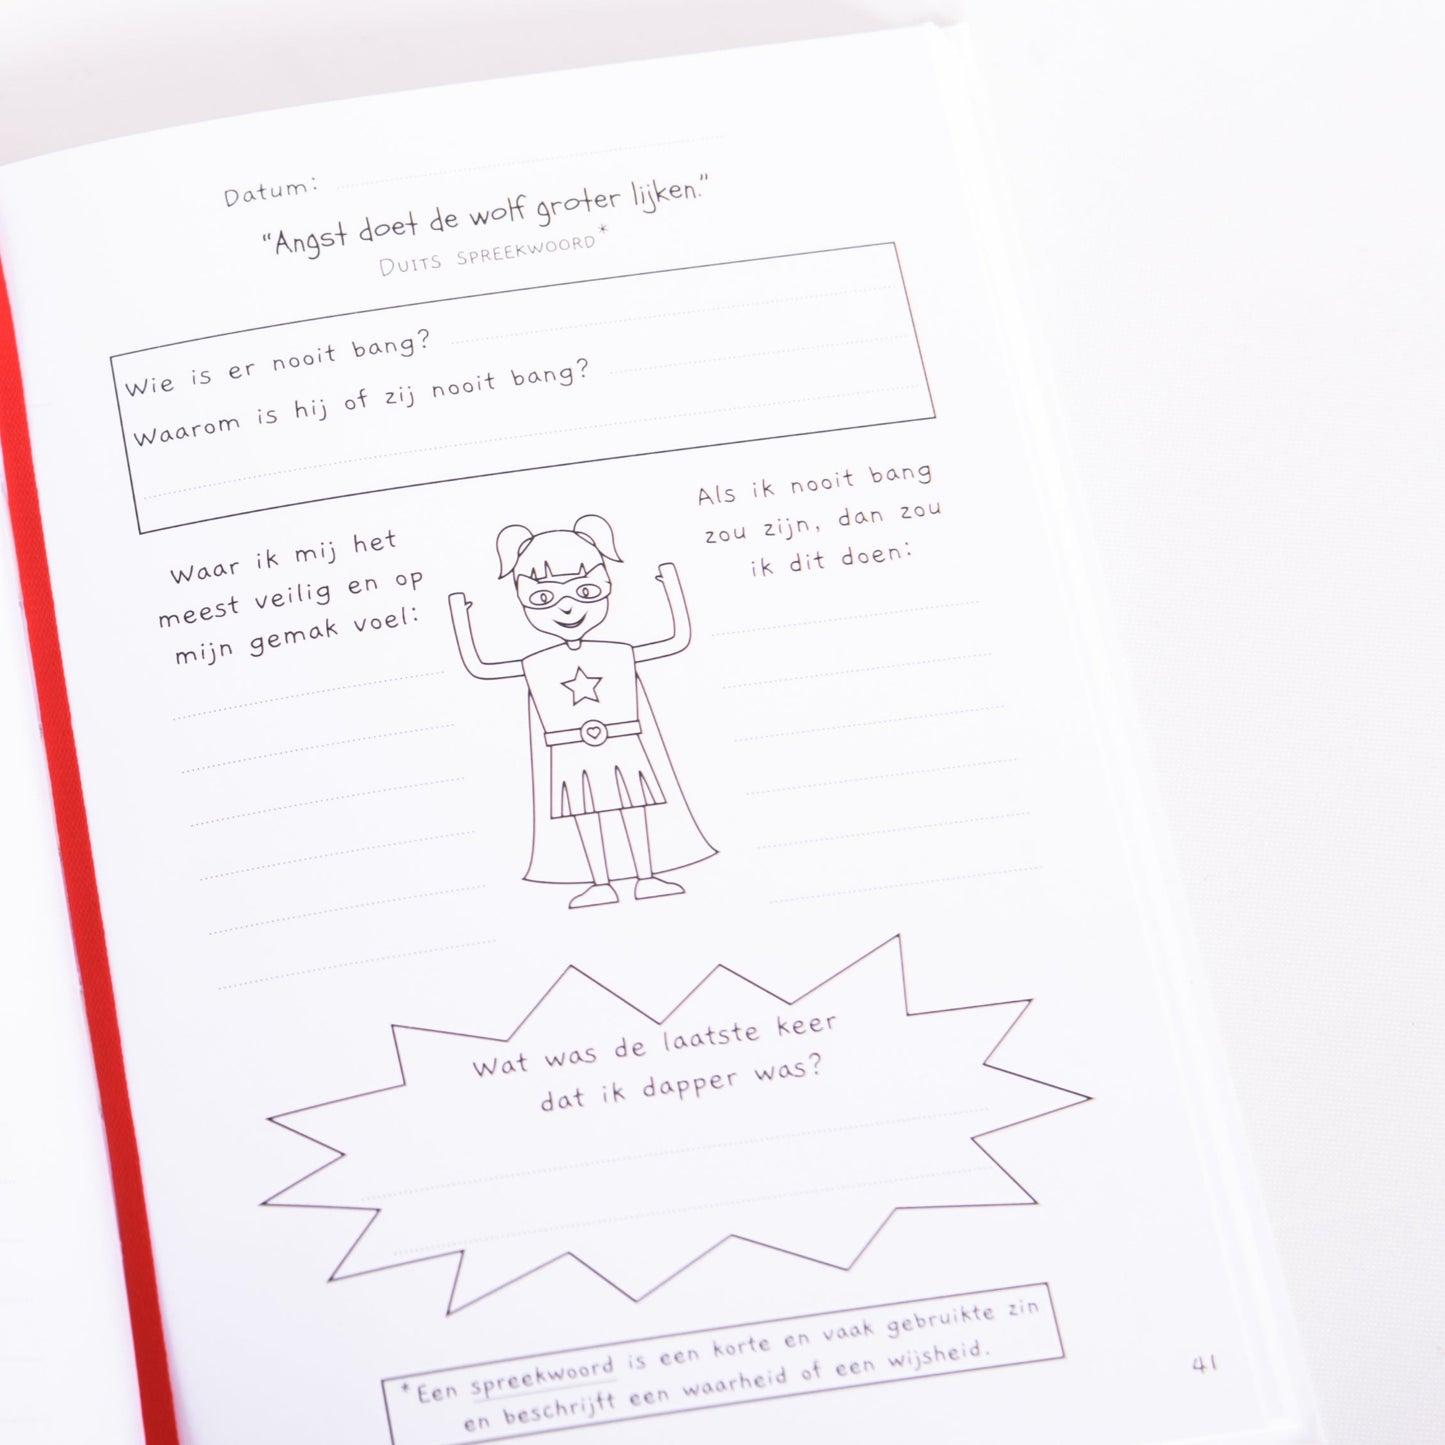 Datum:
“Angst doet de wolf groter lijken.”
DUITS SPREEKWOORD*
Wie is er nooit bang?
Waarom is hij of zij nooit bang?
Waar ik mij het
meest veilig en op
mijn gemak voel:
Als ik nooit bang
zou zijn, dan zou
ik dit doen:
Wat was de laatste keer
dat ik dapper was?
*Een spreekwoord is een korte en vaak gebruikte zin
en beschrijft een waarheid of een wijsheid.
41